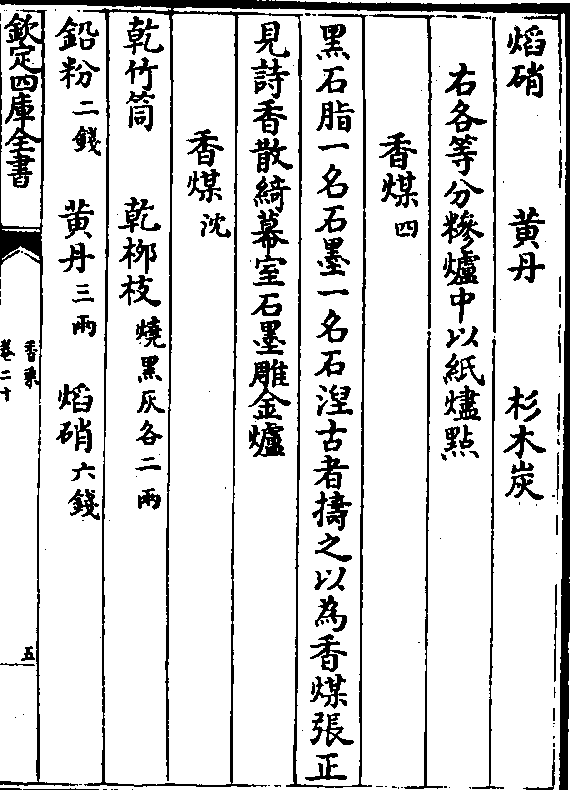 焰硝 黄丹 杉木炭
右各等分糝爐中以紙燼點
香煤四
黑石脂一名石墨一名石湼古者擣之以為香煤張正
見詩香散綺幕室石墨雕金爐
香煤沈
乾竹筒 乾栁枝燒黑灰各二兩
鉛粉二錢 黄丹三兩 焰硝六錢
欽定四庫全書
香乘
卷二十
五